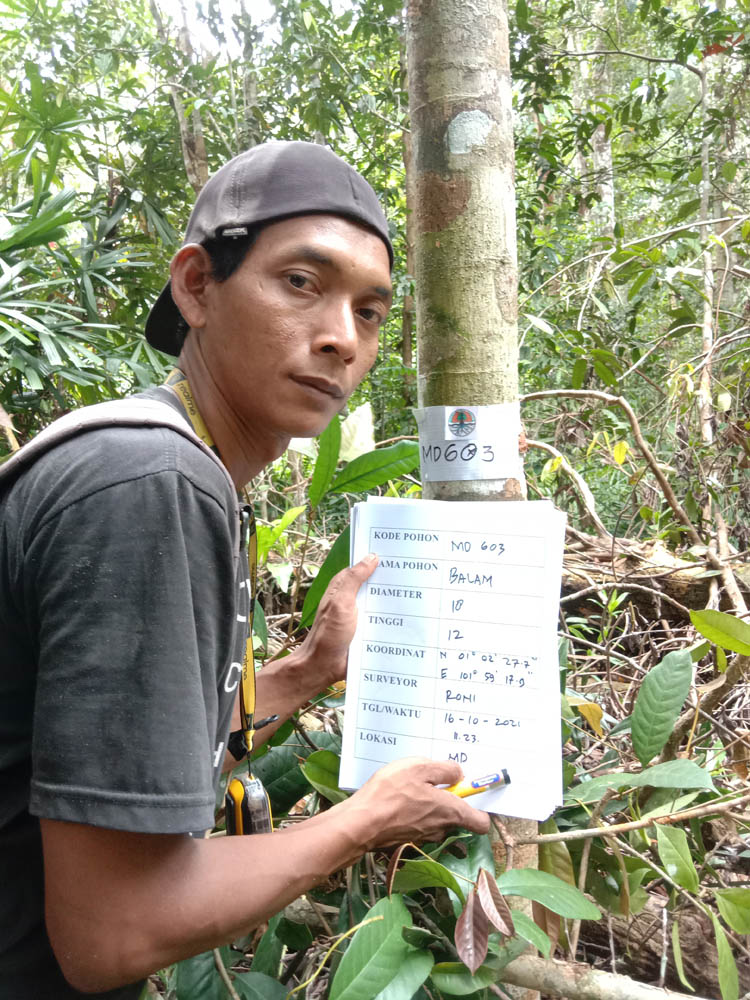 MD603
KODE POHON MD 603
NAMA POHON BALAM
DIAMETER 18
TINGGI 12
KOORDINAT N 01° 02' 27.7"
E 101° 59' 17.9"
SURVEYOR RONI
TGL/WAKTU 16-10-2021
11.23.
LOKASI MD
realme